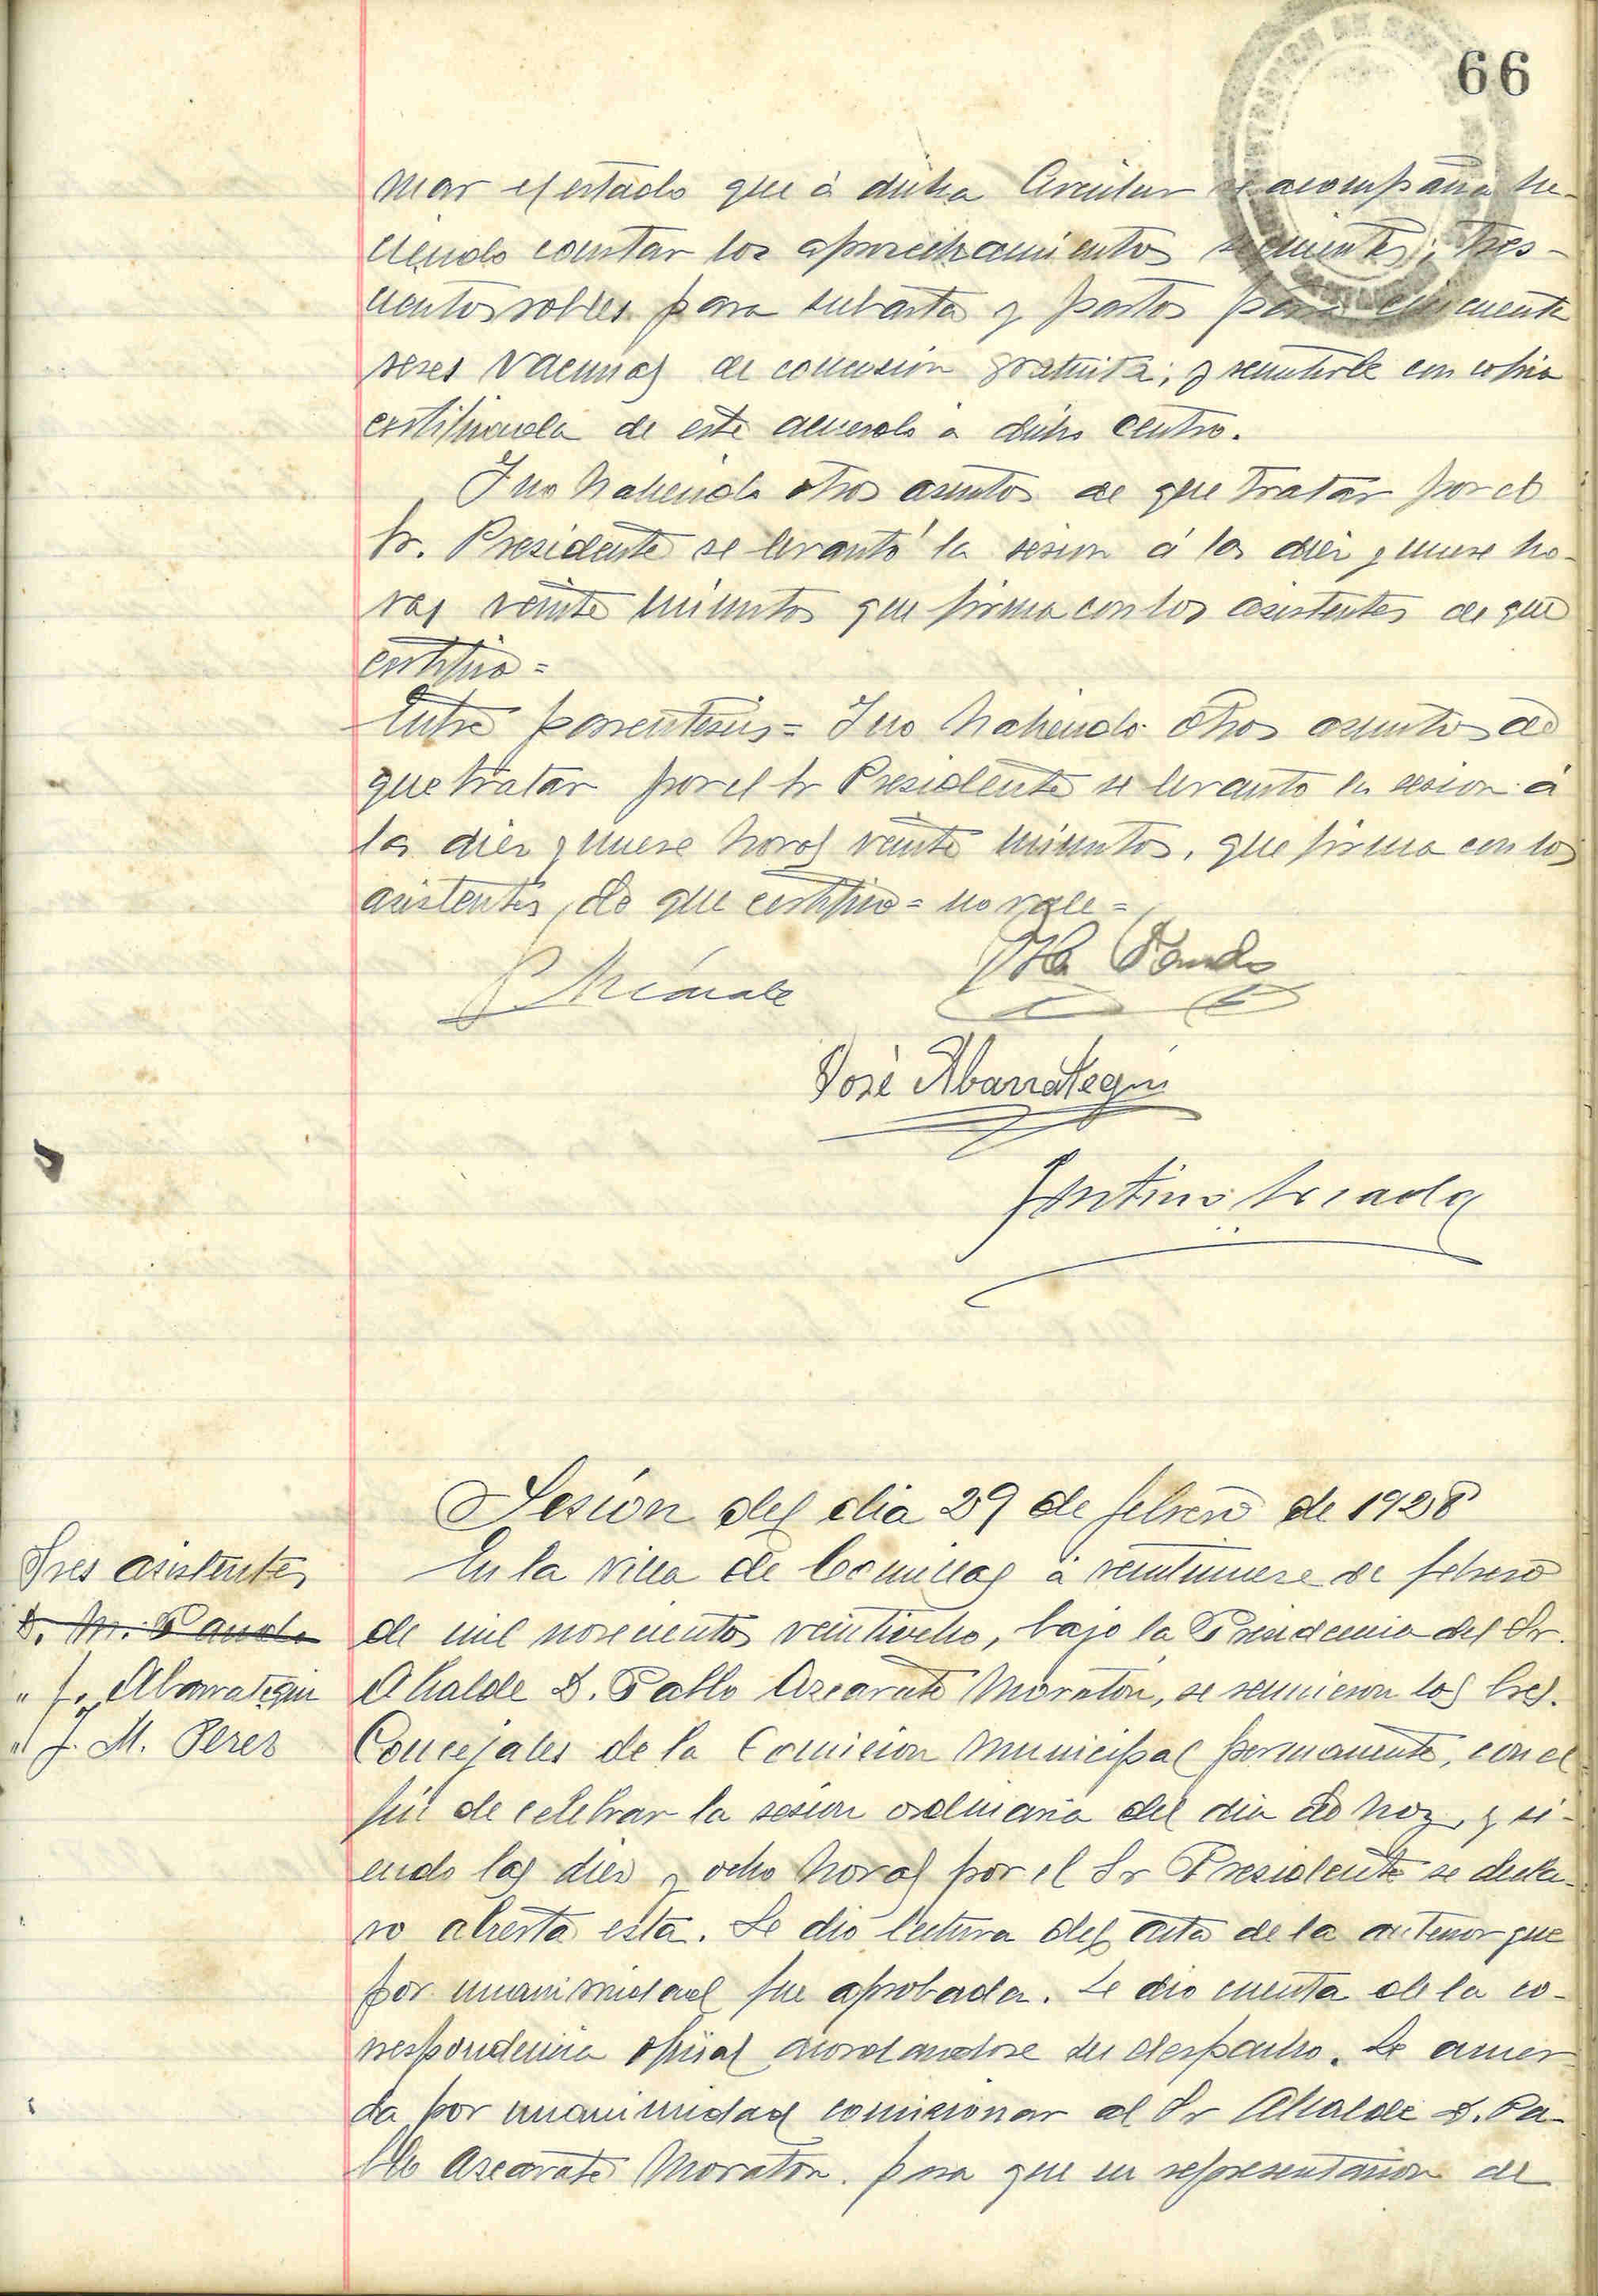 66
mar el estado que á dicha Circular se acompaña ha-
ciendo constar los aprovechamientos siguientes; tres-
cientos robles para subasta y pastos para cincuenta
reses vacunas de concesión gratuita; y remitirle con copia
certificada de este acuerdo á dicho Centro.
Y no habiendo otros asuntos de que tratar por el
Sr. Presidente se levantó la sesion á las diez y nueve ho-
ras veinte minutos que firma con los asistentes de que
certifico =
Entre parentesis = Y no habiendo otros asuntos de
que tratar por el Sr Presidente se levanto la sesion á
las diez y nueve horas veinte minutos, que firma con los
asistentes, de que certifico = no vale =
José Abarrategui
Sesión del dia 29 de febrero de 1928
En la villa de Comillas á veintinueve de febrero
de mil novecientos veintiocho, bajo la Presidencia del Sr.
Alcalde D. Pablo Azcarate Moraton, se reunieron los Sres.
Concejales de la Comision Municipal permanente, con el
fin de celebrar la sesion ordinaria del dia de hoy, y si-
endo las diez y ocho horas por el Sr Presidente se decla-
ro abierta esta. Se dio lectura del acta de la anterior que
por unanimidad fue aprobada. Se dio cuenta de la co-
rrespondencia oficial acordandose su despacho. Se acuer
da por unanimidad comisionar al Sr Alcalde D. Pa-
blo Azcarate Moraton para que en representacion de
Sres asistentes
D. M. Pando
" J. Abarrategui
" J. M. Perez